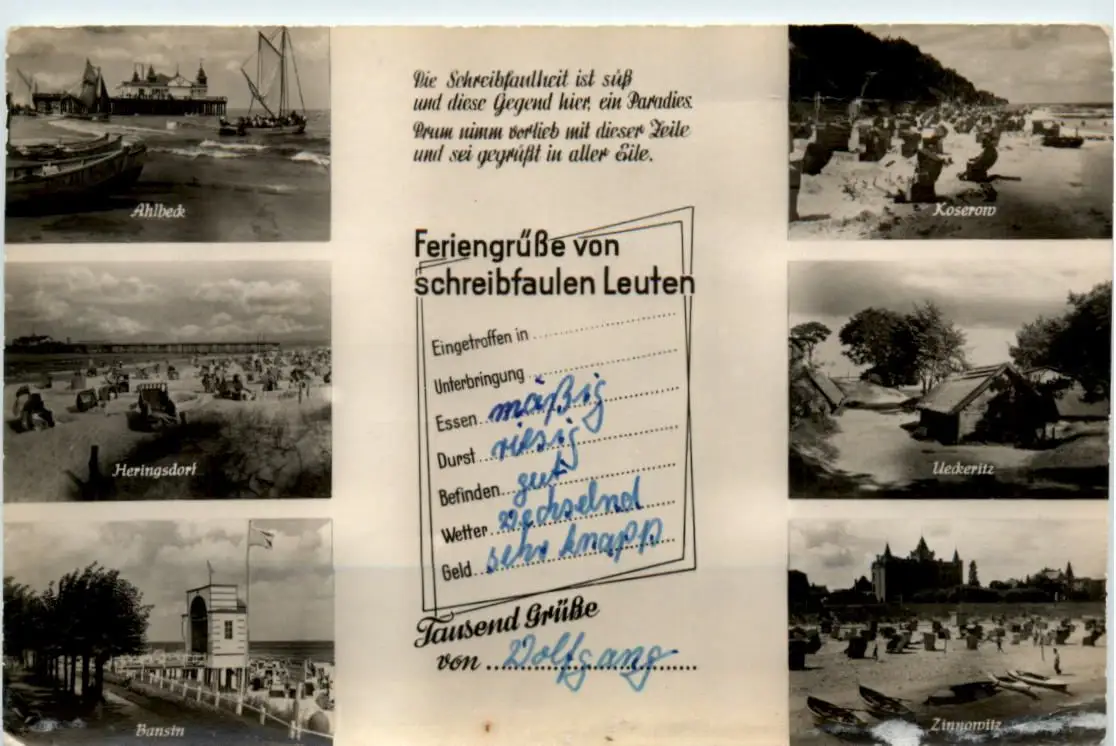 Die Schreibfaulheit ist süß
und diese Gegend hier, ein Paradies.
Drum nimm vorlieb mit dieser Zeile
und sei gegrüßt in aller Eile.
Ahlbeck
Koserow
Feriengrüße von
schreibfaulen Leuten
Eingetroffen in
Unterbringung
Essen mäßig
Durst riesig
Befinden gut
Wetter wechselnd
Geld sehr knapp
Heringsdorf
Ueckeritz
Tausend Grüße
von Wolfgang
Bansin
Zinnowitz